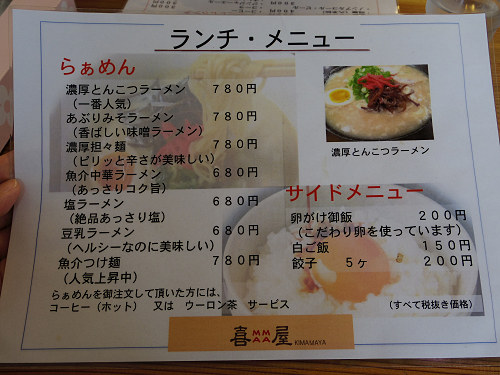 ランチ・メニュー
らぁめん
濃厚とんこつラーメン 780円
(一番人気)
あぶりみそラーメン 780円
(香ばしい味噌ラーメン)
濃厚担々麺 780円
(ピリッと辛さが美味しい)
魚介中華ラーメン 680円
(あっさりコク旨)
塩ラーメン 680円
(絶品あっさり塩)
豆乳ラーメン 680円
(ヘルシーなのに美味しい)
魚介つけ麺 780円
(人気上昇中)
らぁめんを御注文して頂いた方には、
コーヒー(ホット) 又は ウーロン茶 サービス
濃厚とんこつラーメン
サイドメニュー
卵がけ御飯 200円
(こだわり卵を使っています)
白ご飯 150円
餃子 5ヶ 200円
(すべて税抜き価格)
喜MMAA屋 KIMAMAYA